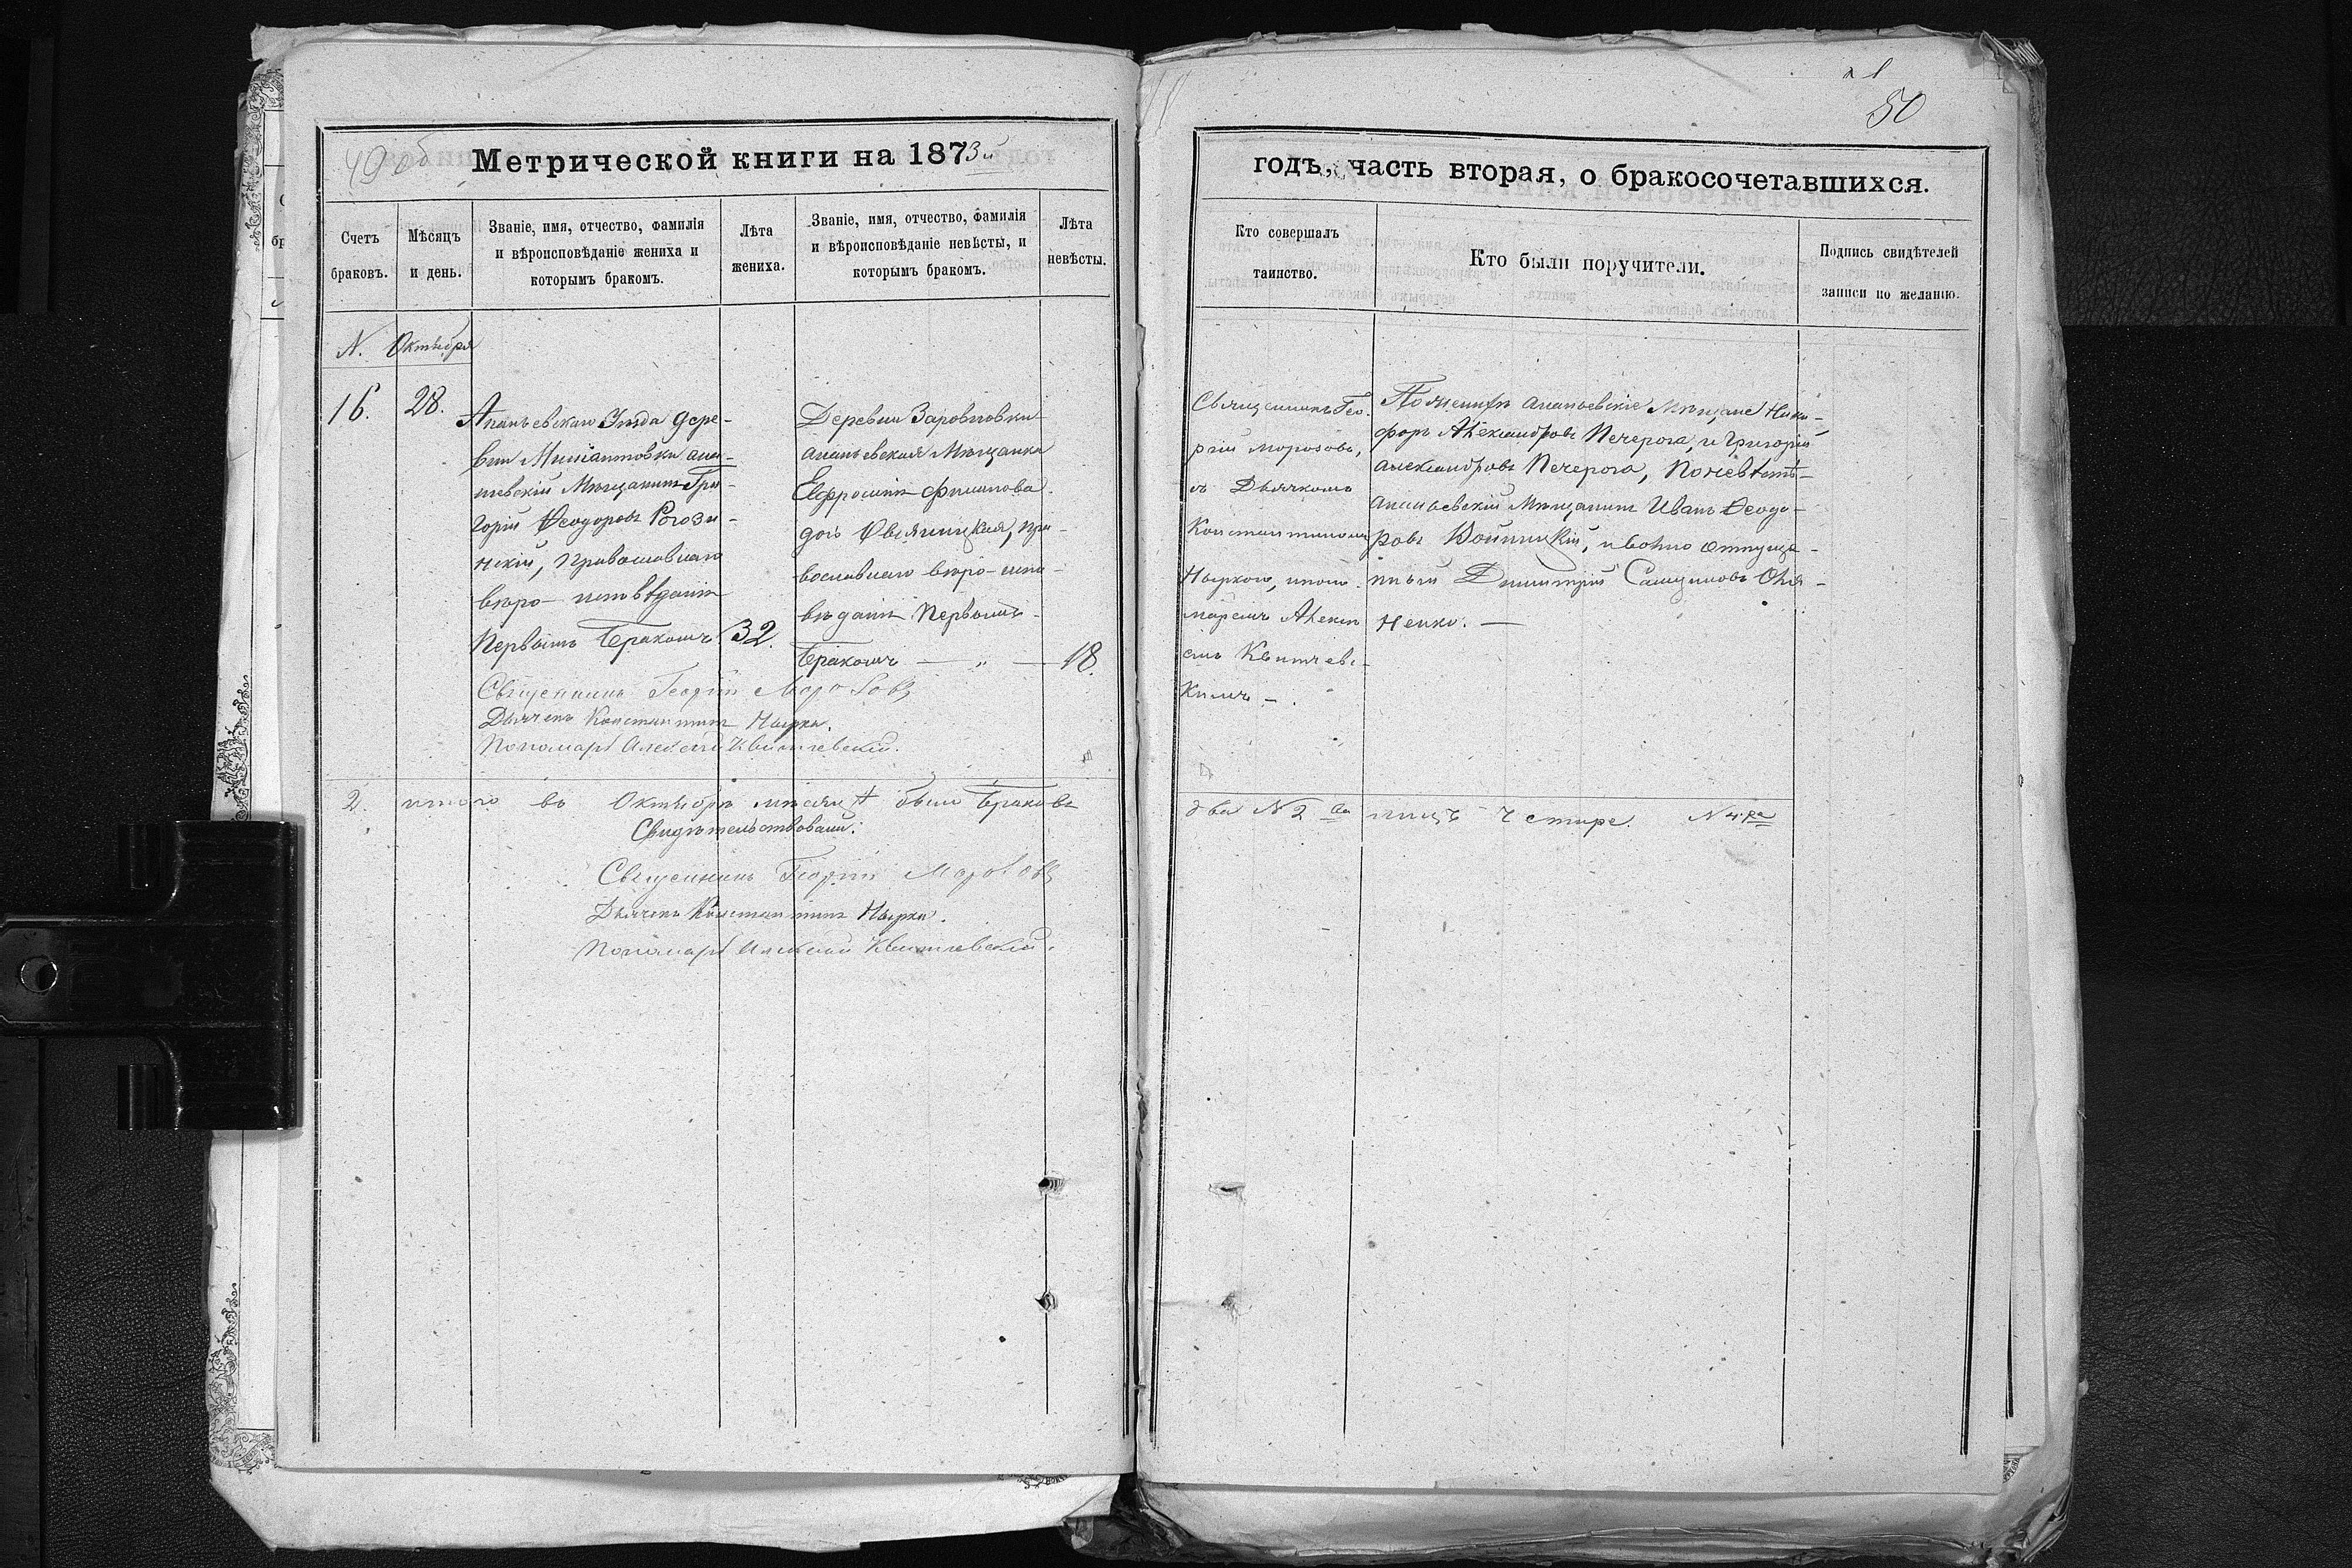 49 об
Метрической книги на 1873й
Счетъ браковъ.
Мѣсяцъ и день.
Званіе, имя, отчество, фамилія и вѣроисповѣданіе жениха и которымъ бракомъ.
Лѣта жениха.
Званіе, имя, отчество, фамилія и вѣроисповѣданіе невѣсты, и которымъ бракомъ.
Лѣта невѣсты.
N. Октября
16.
28.
Ананьевскаго Уѣзда дере-
вни анан-
ьевскій Мѣщанинъ Гри-
горій Ѳеодоровъ Рогози-
нскій, православнаго
вѣро-исповѣданія
Первымъ бракомъ
32.
Деревни
ананьевская Мѣщанка
Евфросинія Филипова
дочь пра-
вославнаго вѣро-испо-
вѣданія первымъ
бракомъ — „ —
18.
Священникъ Георгій Морозовъ
Дьячекъ Константинъ Нырко.
Пономарь Алексѣй Квитчевскій.
2. итого въ Октябрѣ мѣсяцѣ было браковъ
Свидѣтельствовали:
Священникъ Георгій Морозовъ
Дьячекъ Константинъ Нырко.
Пономарь Алексѣй Квитчевскій.
50
годъ, часть вторая, о бракосочетавшихся.
Кто совершалъ таинство.
Кто были поручители.
Подпись свидѣтелей записи по желанію.
Священникъ Гео-
ргій Морозовъ,
съ Дьячкомъ
Константиномъ
Ныркою, и поно-
маремъ Алексѣ-
емъ Квитчевс-
кимъ —.
По женихѣ ананьевскіе Мѣщане Ники-
форъ Александровъ Печерога, и Григорій
Александровъ Печерога, по невѣстѣ —
Ананьевскій Мѣщанинъ Иванъ Ѳеодо-
ровъ Войницкій, и вольно отпуще-
нный Димитрій
ненко. —
два N 2 ва лицъ четыре. N 4. ре